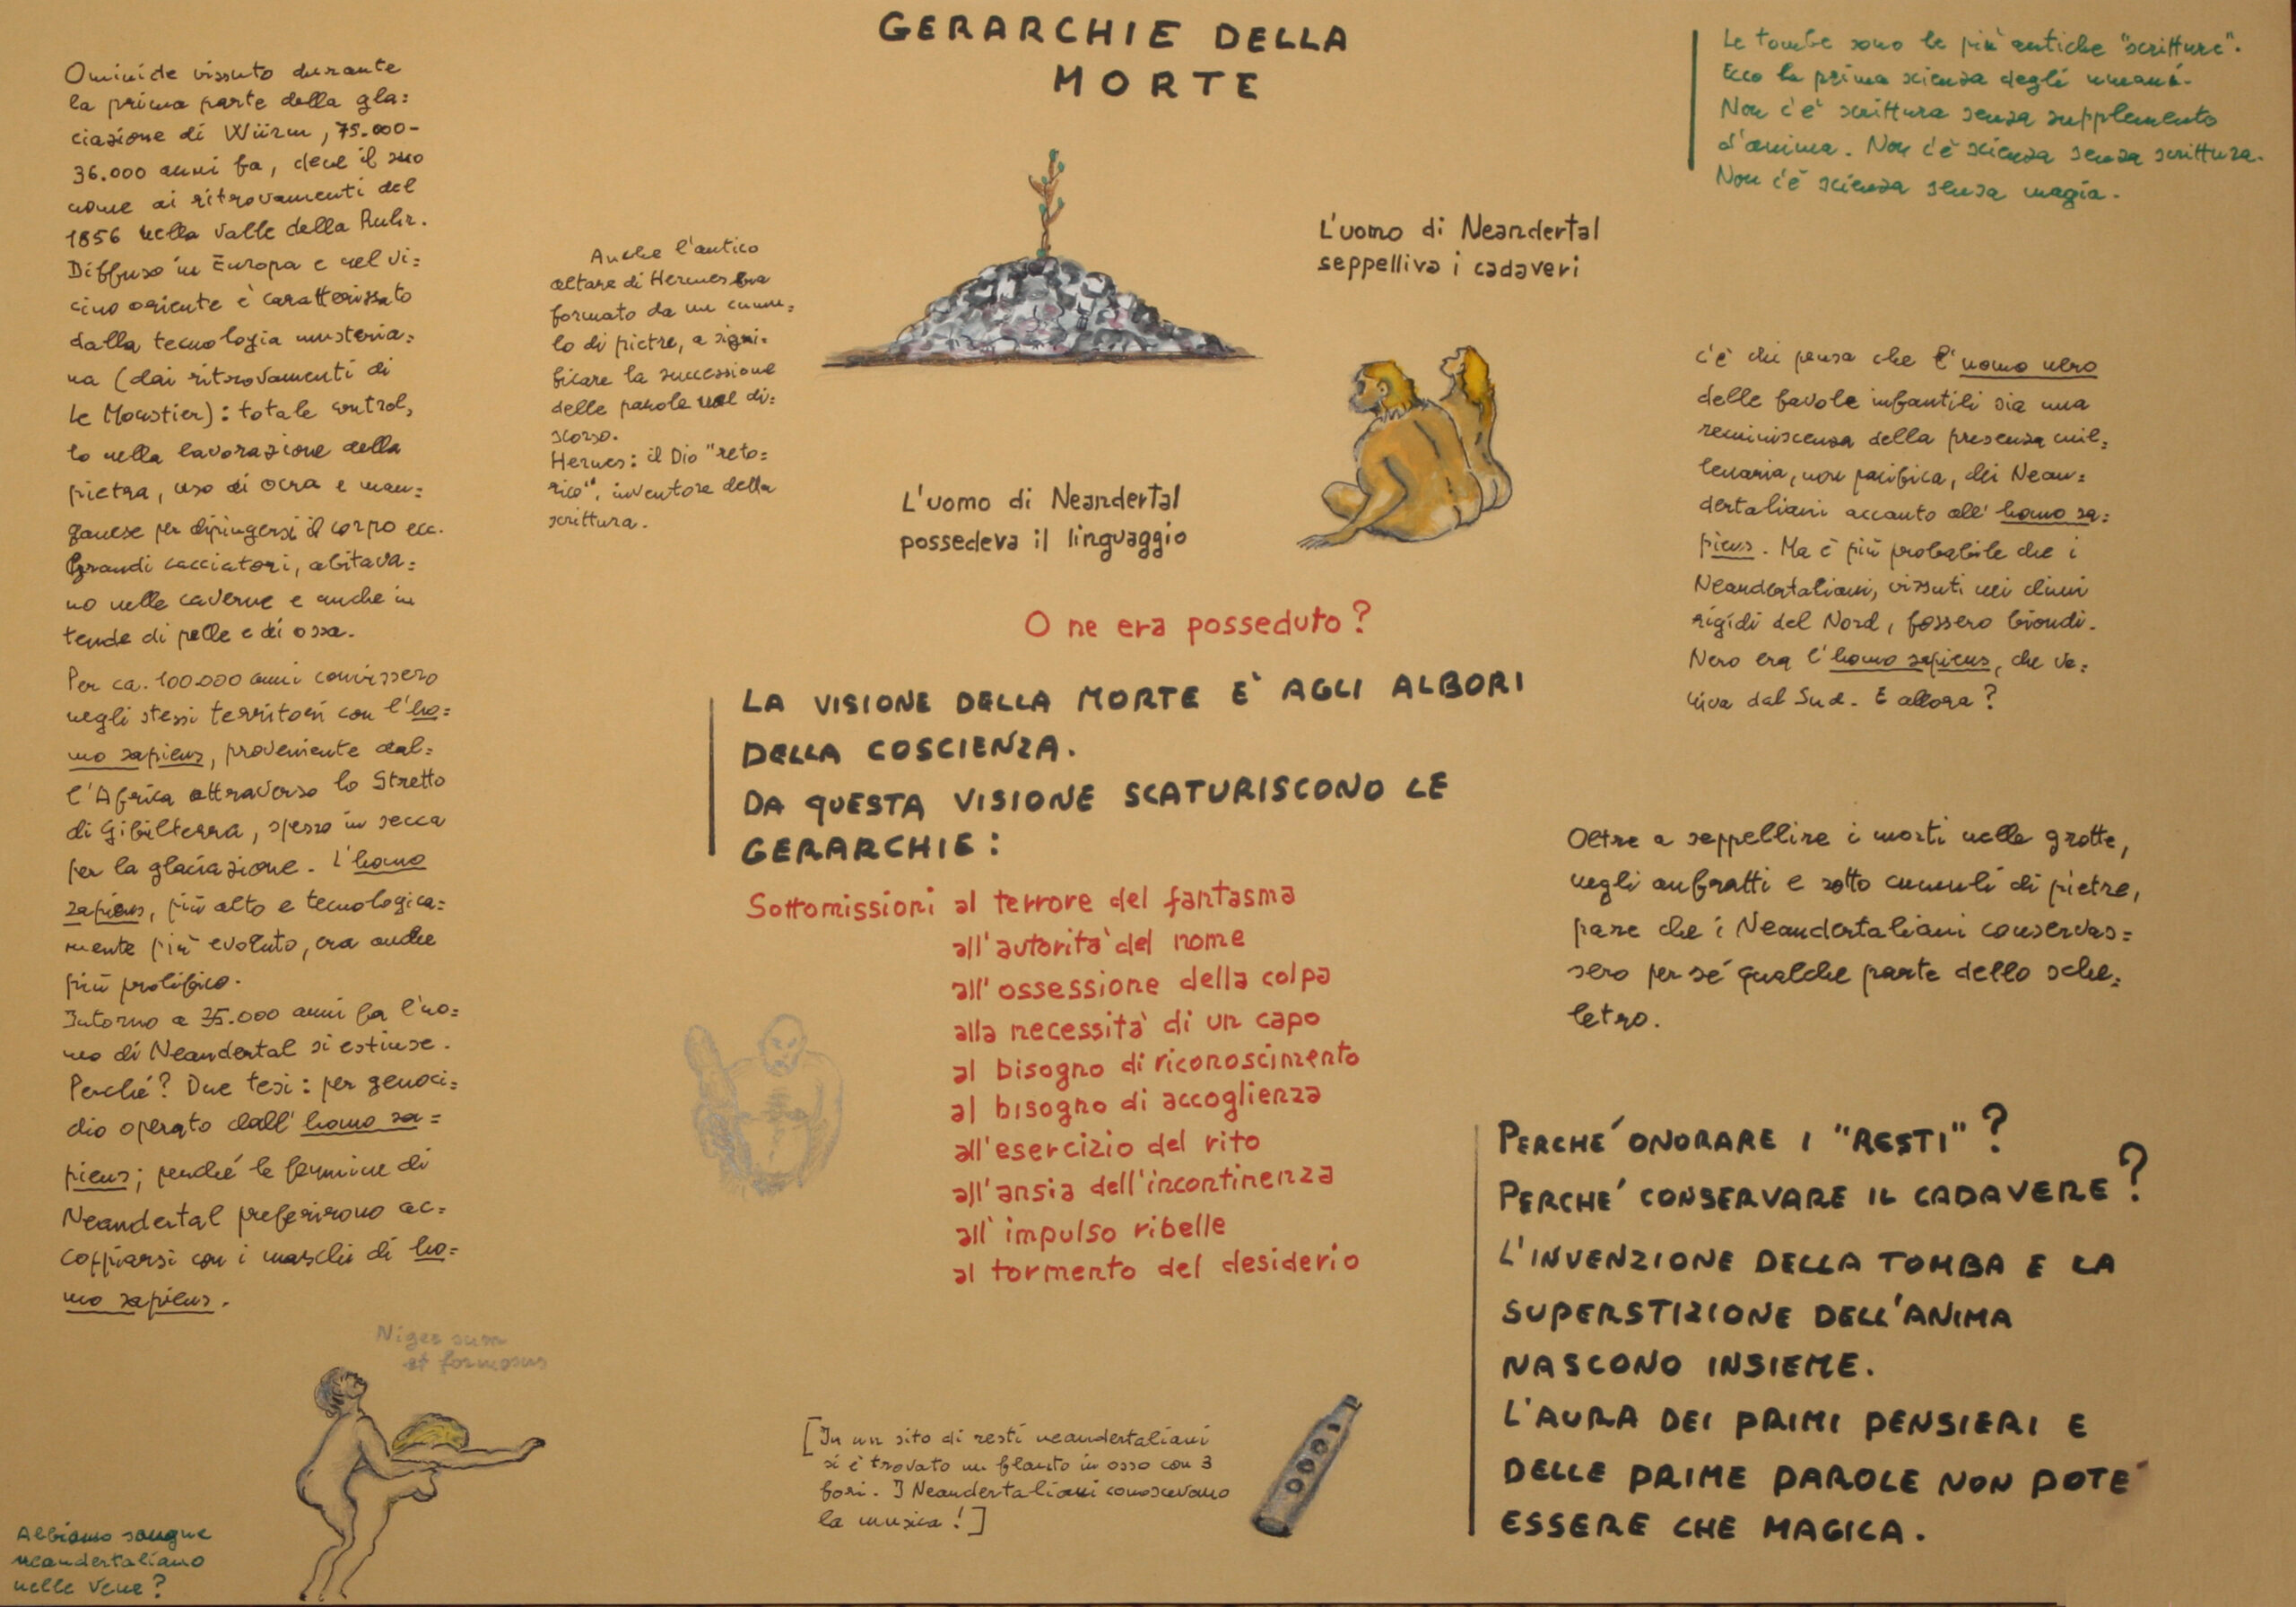 GERARCHIE DELLA
MORTE
Ominide vissuto durante
la prima parte della gla=
ciazione di Würm, 75.000-
36.000 anni fa, deve il suo
nome ai ritrovamenti del
1856 nella valle della Ruhr.
Diffuso in Europa e nel vi=
cino oriente è caratterizzato
dalla tecnologia musteria=
na (dai ritrovamenti di
Le Moustier): totale control,
lo nella lavorazione della
pietra, uso di ocra e man=
ganese per dipingersi il corpo ecc.
Grandi cacciatori, abitava=
no nelle caverne e anche in
tende di pelle e di ossa.
Per ca. 100.000 anni convissero
negli stessi territori con l'ho=
mo sapiens, proveniente dal=
l'Africa attraverso lo Stretto
di Gibilterra, spesso in secca
per la glaciazione. L'homo
sapiens, più alto e tecnologica=
mente più evoluto, era anche
più prolifico.
Intorno a 35.000 anni fa l'uo=
mo di Neandertal si estinse.
Perché? Due tesi: per genoci=
dio operato dall'homo sa=
piens; perché le femmine di
Neandertal preferirono ac=
coppiarsi con i maschi di ho=
mo sapiens.
Niger sum
et formosus
Abbiamo sangue
neandertaliano
nelle vene?
Anche l'antico
altare di Hermes era
formato da un cumu=
lo di pietre, a signi=
ficare la successione
delle parole nel di=
scorso.
Hermes: il Dio "reto=
rico", inventore della
scrittura.
L'uomo di Neandertal
seppelliva i cadaveri
L'uomo di Neandertal
possedeva il linguaggio
O ne era posseduto?
LA VISIONE DELLA MORTE E' AGLI ALBORI
DELLA COSCIENZA.
DA QUESTA VISIONE SCATURISCONO LE
GERARCHIE:
Sottomissioni al terrore del fantasma
all'autorità del nome
all'ossessione della colpa
alla necessità di un capo
al bisogno di riconoscimento
al bisogno di accoglienza
all'esercizio del rito
all'ansia dell'incontinenza
all'impulso ribelle
al tormento del desiderio
[In un sito di resti neandertaliani
si è trovato un flauto in osso con 3
fori. I Neandertaliani conoscevano
la musica!]
Le tombe sono le più antiche "scritture".
Ecco la prima scienza degli umani.
Non c'è scrittura senza supplemento
d'anima. Non c'è scienza senza scrittura.
Non c'è scienza senza magia.
C'è chi pensa che l'uomo nero
delle favole infantili sia una
reminiscenza della presenza mil=
lenaria, non pacifica, dei Nean=
dertaliani accanto all'homo sa=
piens. Ma è più probabile che i
Neandertaliani, vissuti nei climi
rigidi del Nord, fossero biondi.
Nero era l'homo sapiens, che ve=
niva dal Sud. E allora?
Oltre a seppellire i morti nelle grotte,
negli anfratti e sotto cumuli di pietre,
pare che i Neandertaliani conservas=
sero per sé qualche parte dello sche=
letro.
PERCHE' ONORARE I "RESTI"?
PERCHE' CONSERVARE IL CADAVERE?
L'INVENZIONE DELLA TOMBA E LA
SUPERSTIZIONE DELL'ANIMA
NASCONO INSIEME.
L'AURA DEI PRIMI PENSIERI E
DELLE PRIME PAROLE NON POTE'
ESSERE CHE MAGICA.